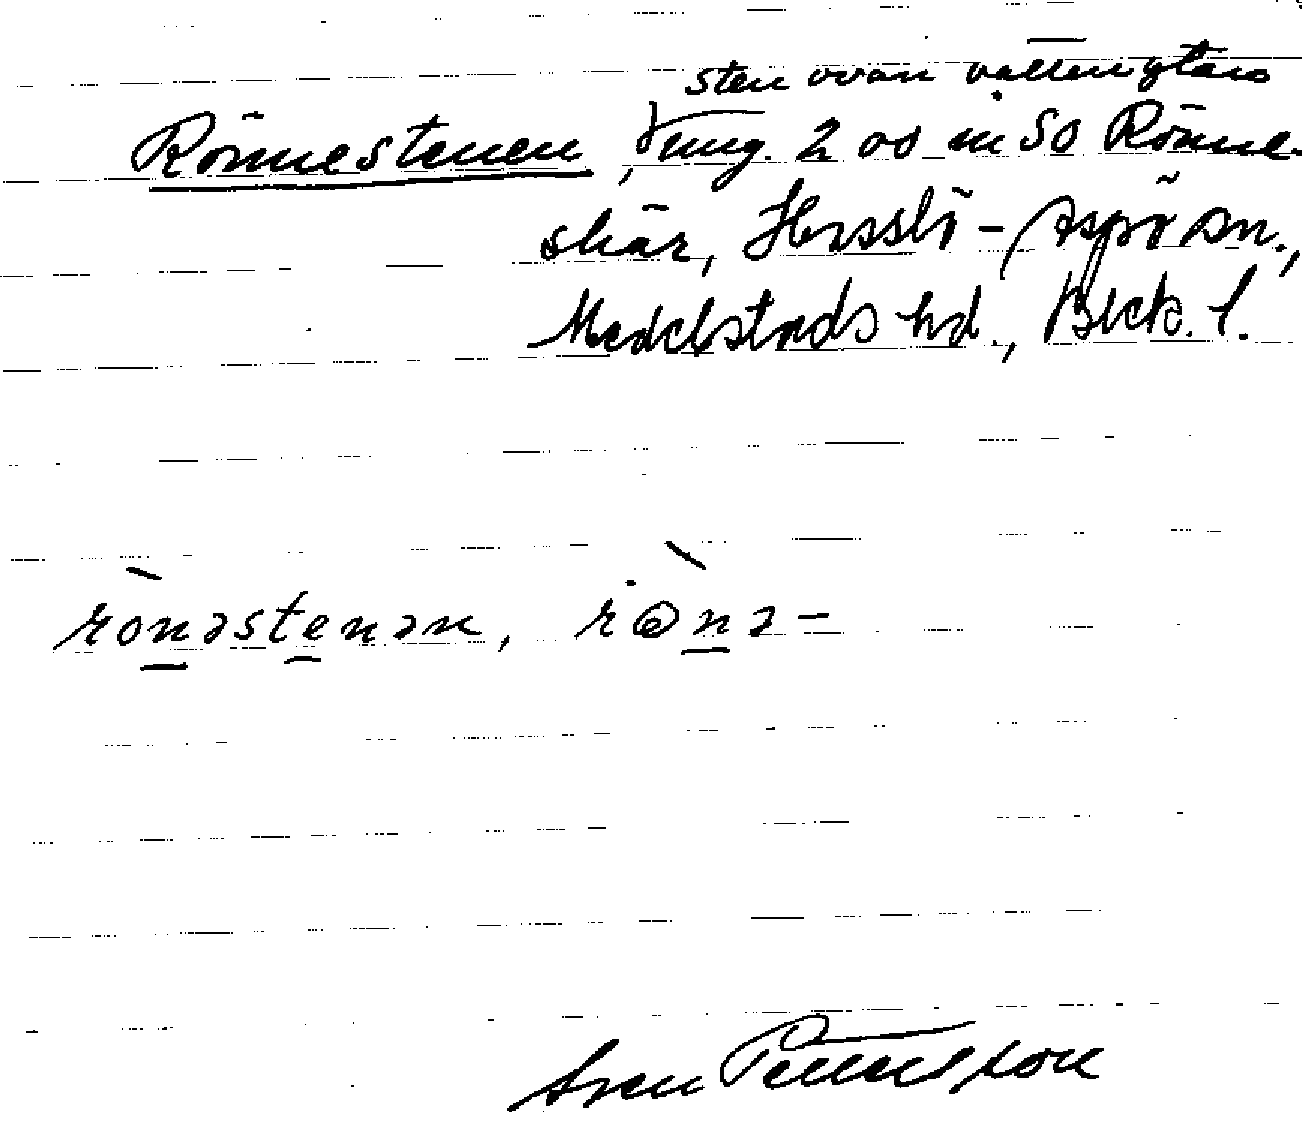 sten ovan vattenytan
Rönnestenen, ung. 200 m SO Rönne-
skär, Hasslö-Aspö sn.,
Medelstads hd., Blek. l.
rönəstenən, r@nə-
Sven Pettersson